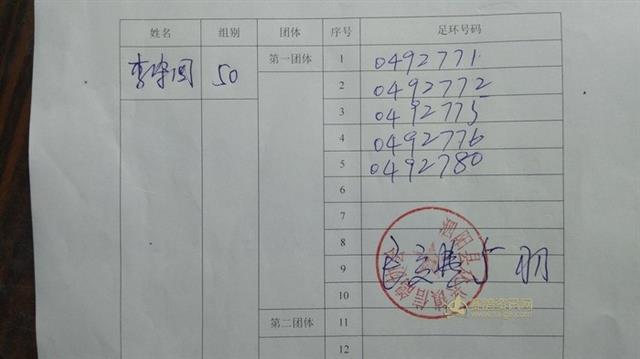 姓名 组别 团体 序号 足环号码
李 50 第一团体 1 0492771
2 0492772
3 0492775
4 0492776
5 0492780
6
7
8
9
10
第二团体 11
12
5 羽
泗阳县 信鸽